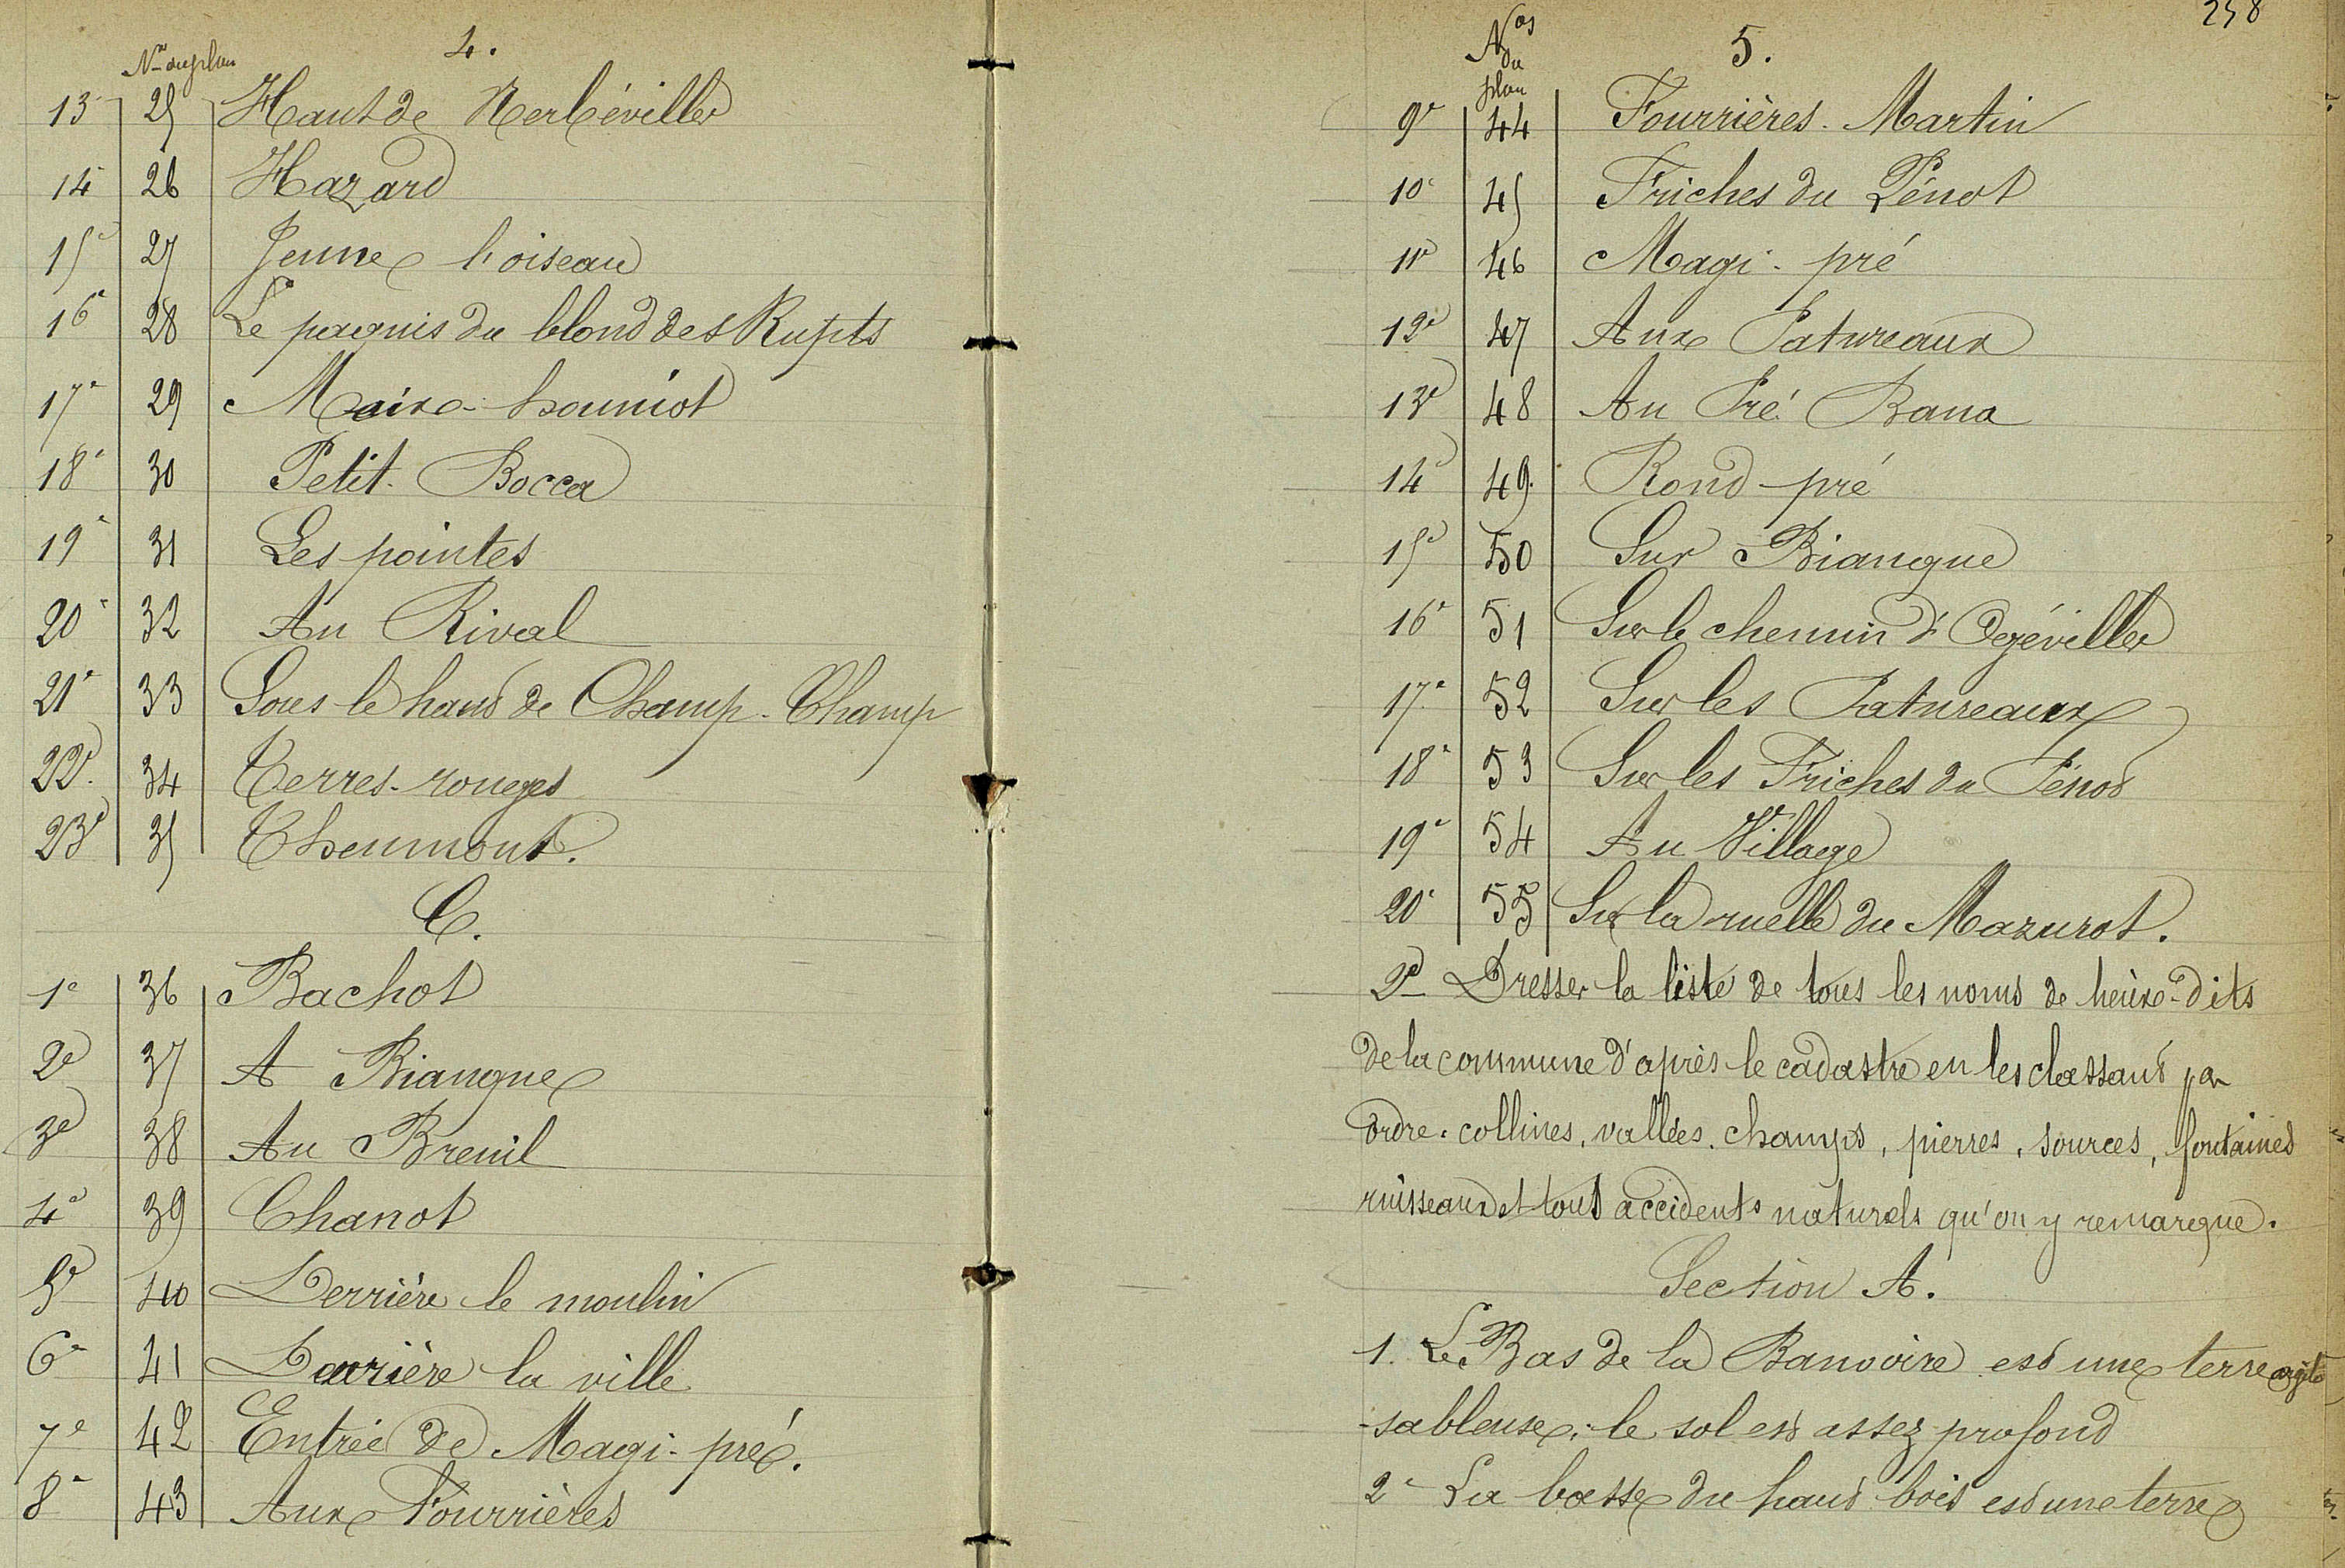 4.
Nos du plan
13 25 Haut de Herbéviller
14 26 Hazard
15e 27 Jeune l'oiseau
16e 28 Le paquis du blond des Rupts
17e 29 Maix-houniot
18e 30 Petit-Bocca
19e 31 Les pointes
20e 32 Au Rival
21e 33 Sous le haut de Champ-Champ
22e 34 Terres-rouges
23e 35 Theumont.
C.
1e 36 Bachot
2e 37 A Biangue
3e 38 Au Breuil
4e 39 Chanot
5e 40 Derrière le moulin
6e 41 Derrière la ville
7e 42 Entrée de Magi-pré.
8e 43 Aux Fourrières
258
5.
Nos du plan
9e 44 Fourrières-Martin
10e 45 Friches du Pénot
11e 46 Magi-pré
12e 47 Aux Patureaux
13e 48 Au Pré Bana
14e 49 Rond-pré
15e 50 Sur Biangue
16e 51 Sur le chemin d'Ogéviller
17e 52 Sur les Patureaux
18e 53 Sur les Friches du Pénot
19e 54 Au Village
20e 55 Sur la ruelle du Mazurot.
2e Dresser la liste de tous les noms de lieux-dits
de la commune d'après le cadastre en les classant par
ordre. collines, vallées, champs, pierres, sources, fontaines
ruisseaux et tout accidents naturels qu'on y remarque.
Section A.
1. Le Bas de la Banvoire est une terre argilo
-sableuse; le sol est assez profond
2e La basse du haut bois est une terre